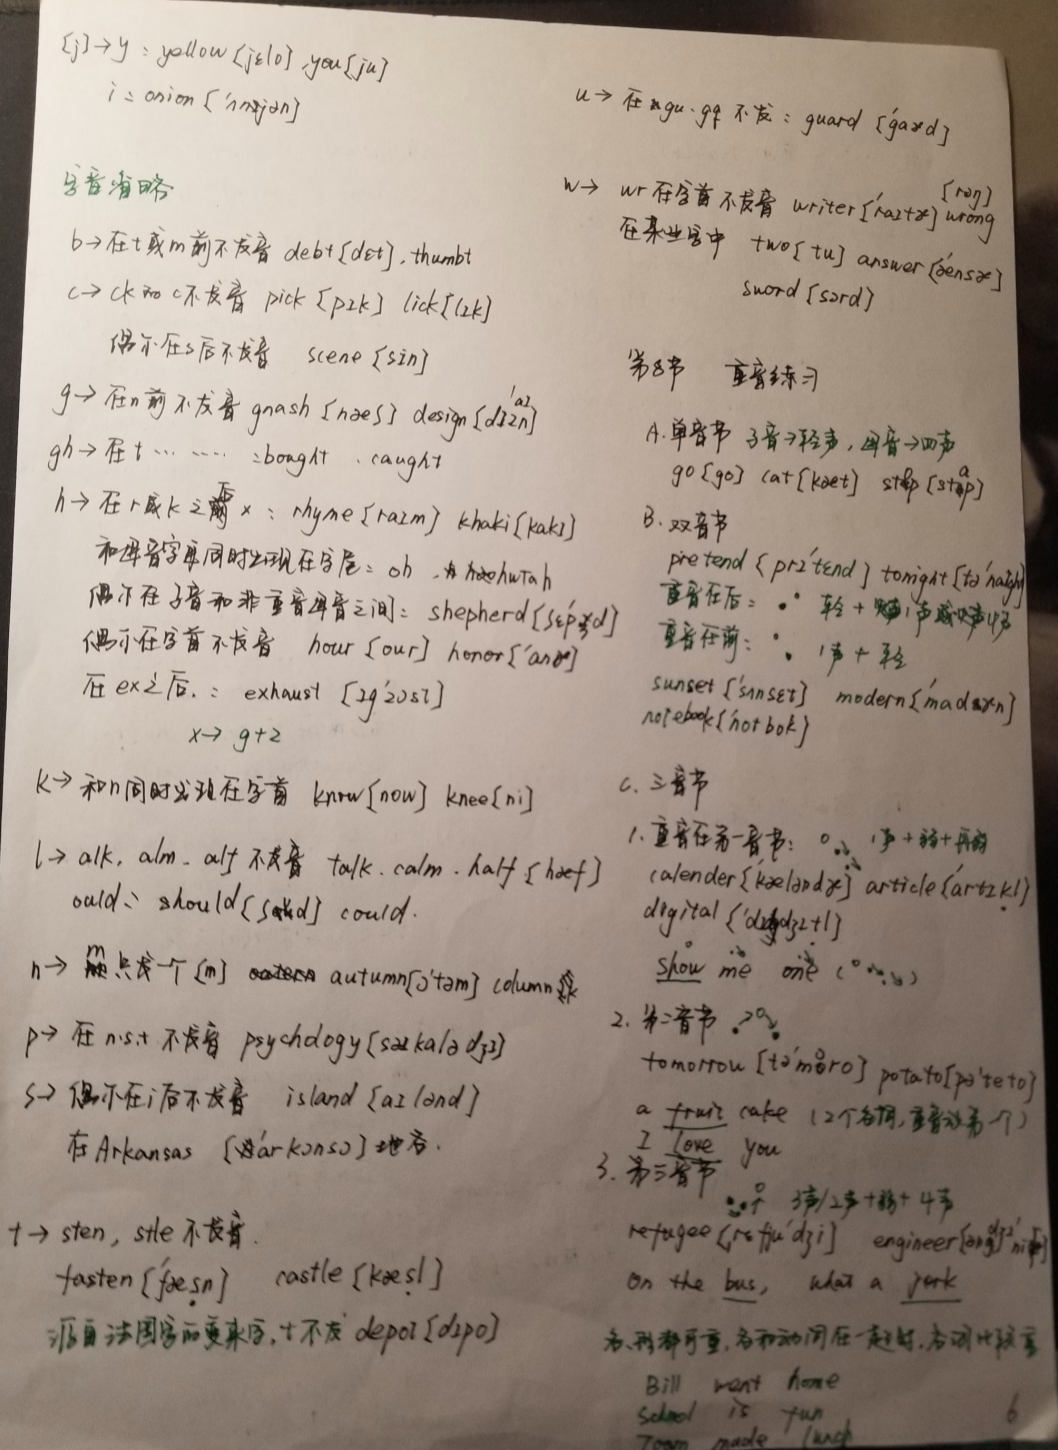 [j]→y: yellow [jɛlo], you [ju]
i: onion ['ʌnjən]
字音省略
b→在t或m前不发音 debt [dɛt], thumbt
c→ck和c不发音 pick [pɪk] lick [lɪk]
偶尔在s后不发音 scene [sin]
g→在n前不发音 gnash [næʃ] design
gh→在t…… : bought . caught
h→在r或k之后x: rhyme [raɪm] khaki [kakɪ]
和母音字母同时出现在字尾: oh hurrah
偶尔在子音和非重音母音之间: shepherd
偶尔在字前不发音 hour [our] honor
在ex之后: exhaust [ɪg'zɔst]
x→g+z
k→和n同时出现在字首 know [now] knee [ni]
l→alk, alm, alf 不发音 talk. calm. half [hæf]
ould: should could.
n→ 只发一个[m] autumn [ɔ'təm] column
p→在n.s.t 不发音 psychology
s→偶尔在i后不发音 island [aɪlənd]
在Arkansas ['árkənsɔ] 地名.
t→sten, stle 不发音.
fasten [fæsn] castle [kæsl]
源自法国字的更来字, t不发 depot [dɪpo]
u→在gu. gq 不发: guard ['gaɚd]
w→wr在字首不发音 writer ['raɪtɚ] wrong [rɔŋ]
在某些字中 two [tu] answer ['ænsɚ]
sword [sɔrd]
第8节 重音练习
A. 单音节 子音→轻声, 母音→四声
go [go] cat [kæt] stop [stap]
B. 双音节
pretend [prɪ'tɛnd] tonight
重音在后: 轻+
重音在前: 1声+轻
sunset ['sʌnsɛt] modern
notebook ['notbok]
C. 三音节
1. 重音在第一音节: 1声+弱+再弱
calender ['kæləndɚ] article ['artɪkl]
digital
show me one
2. 第二音节
tomorrow potato [pə'teto]
a fruit cake (2个名词, 重音放第一个)
I love you
3. 第三音节
3声/2声+弱+4声
refugee engineer
on the bus, what a jerk
名、形都可重, 名和动词在一起时, 名词比较重
Bill went home
School is fun
Toom made lunch
6